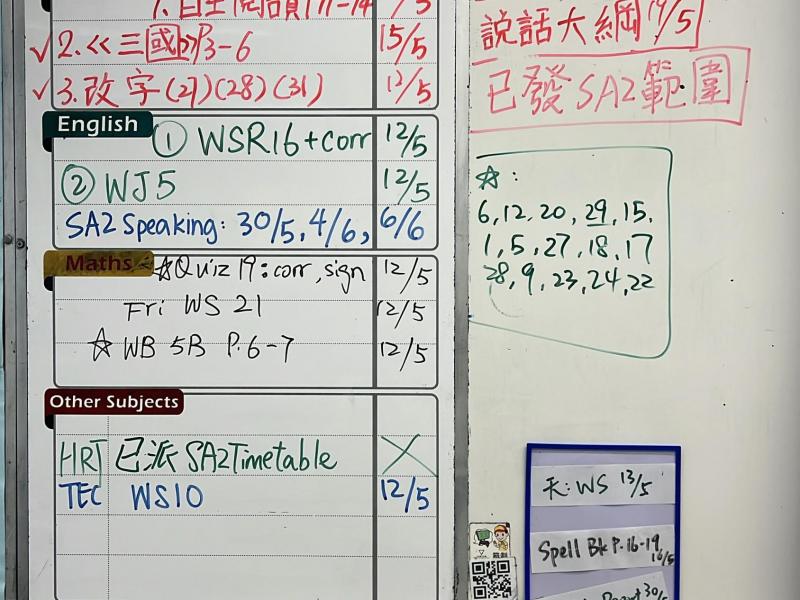 1. 自主閱讀 11-14 /5
2. 《三國》 3-6 15/5
3. 改字 (27) (28) (31) 12/5
English
① WSR16+corr 12/5
② WJ5 12/5
SA2 Speaking: 30/5, 4/6, 6/6
Maths
☆Quiz 19: corr, sign 12/5
Fri WS 21 12/5
☆ WB 5B P. 6-7 12/5
Other Subjects
HRT 已派 SA2 Timetable ╳
TEC WS10 12/5
說話大綱 19/5
已發 SA2 範圍
☆:
6, 12, 20, 29, 15,
1, 5, 27, 18, 17
28, 9, 23, 24, 22
天: WS 13/5
Spell Bk P. 16-19 16/5
30/5